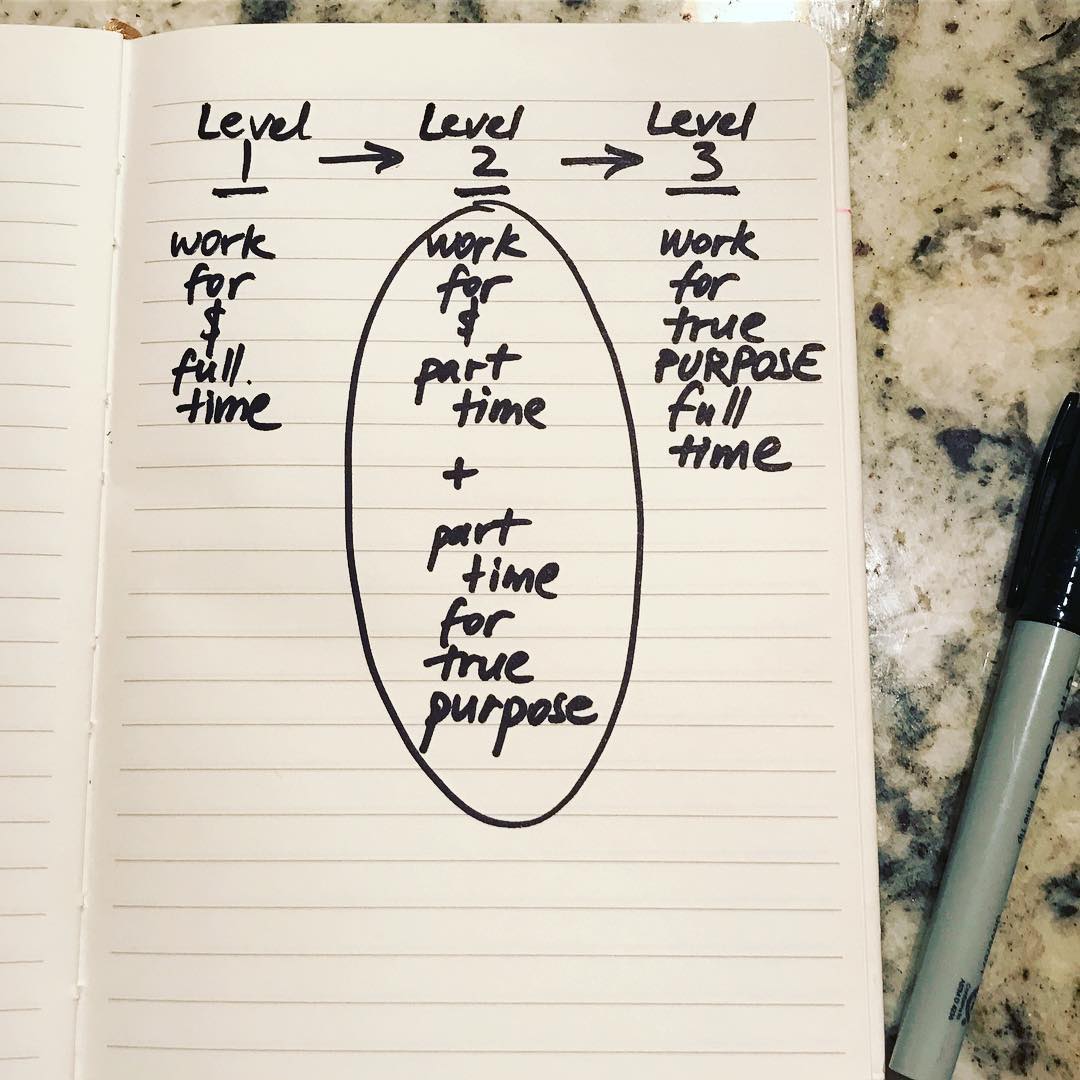 Level
1
→
Level
2
→
Level
3
work
for
$
full
time
work
for
$
part
time
+
part
time
for
true
purpose
work
for
true
PURPOSE
full
time